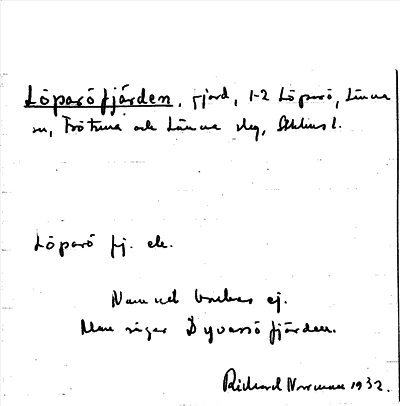 Löparöfjärden, fjärd, 1-2 Löparö, Länna
sn, Frötuna och Länna skg, Sthlms l.
Löparö fj. ek.
Namnet brukas ej.
Man säger Dyvassöfjärden.
Richard Norrman 1932.